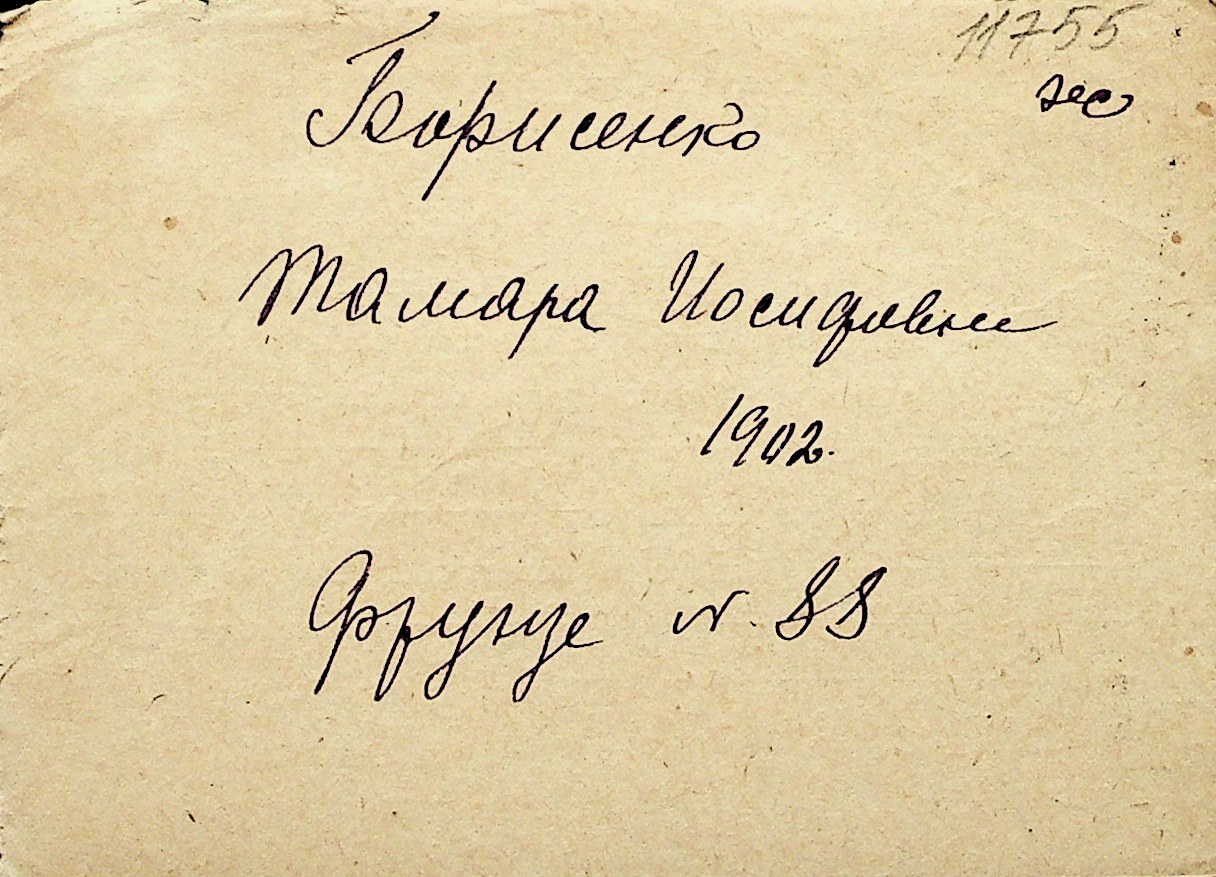 11755
Борисенко
Тамара Иосифовна
1902.
Фрунзе N. 88